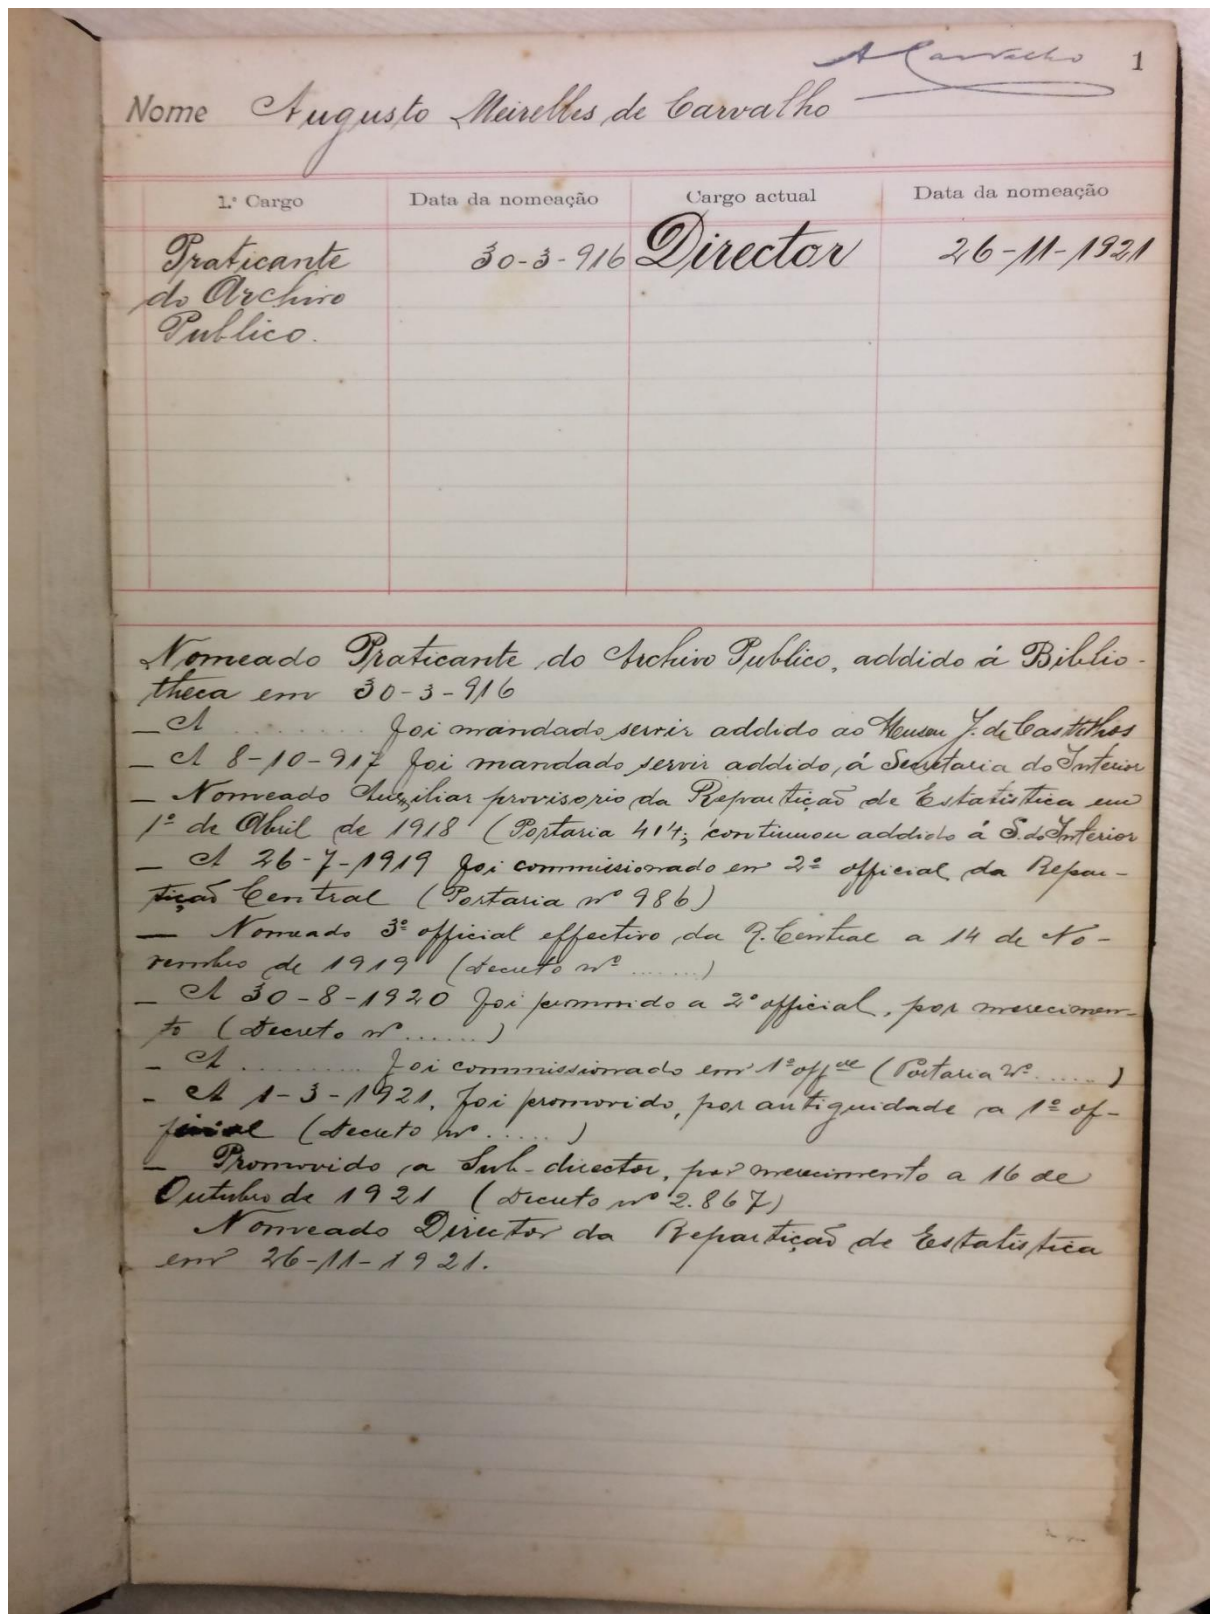 A Carvalho 1
Nome Augusto Meirelles de Carvalho
1.º Cargo Data da nomeação Cargo actual Data da nomeação
Praticante 30-3-916 Director 26-11-1921
do Archivo
Publico.
Nomeado Praticante do Archivo Publico, addido á Biblio-
theca em 30-3-916
_ A .......... foi mandado servir addido ao Museu J. de Castilhos
_ A 8-10-917 foi mandado servir addido, á Secretaria do Interior
_ Nomeado Auxiliar provisorio da Repartição de Estatistica em
1º de Abril de 1918 (Portaria 414; continuou addido á S. do Interior
_ A 26-7-1919 foi commissionado em 2º official da Repar-
tição Central (Portaria nº 986)
_ Nomeado 3º official effectivo da R. Central a 14 de No-
vembro de 1919 (Decreto nº .......)
_ A 30-8-1920 foi promovido a 2º official, por merecimen-
to (Decreto nº ......)
_ A .......... foi commissionado em 1º offal (Portaria Nº ......)
- A 1-3-1921, foi promovido, por antiguidade a 1º of-
ficial (Decreto nº ......)
_ Promovido a Sub-director, por merecimento a 16 de
Outubro de 1921 (Decreto nº 2.867)
Nomeado Director da Repartição de Estatistica
em 26-11-1921.